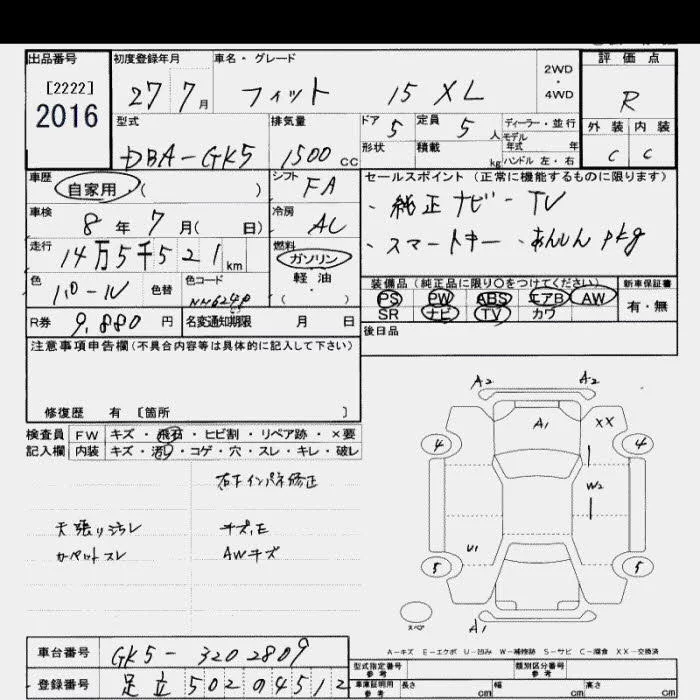 出品番号 初度登録年月 車名・グレード 評価点
[2222]
2016
27 7月 フィット 15 XL 2WD・4WD R
型式 排気量 ドア 5 定員 5 人 ディーラー・並行 外装 内装
DBA-GK5 1500 CC 形状 積載 kg モデル年式 年 ハンドル 左・右 C C
車歴 自家用・( ) シフト FA セールスポイント(正常に機能するものに限ります)
車検 8年 7月( 日) 冷房 AC ・純正ナビ・TV
走行 14万5千521km 燃料 ガソリン ・スマートキー ・あんしんpkg
色 パール 色替 色コード 軽油 ( ) 装備品(純正品に限り○をつけてください) 新車保証書
PS PW ABS エアB AW 有・無
SR ナビ TV カワ
R券 9,880円 名変通知期限 月 日 後日品
注意事項申告欄(不具合内容等は具体的に記入して下さい)
修復歴 有 [箇所 ]
検査員 FW キズ・飛石・ヒビ割・リペア跡・×要
記入欄 内装 キズ・汚レ・コゲ・穴・スレ・キレ・破レ
右下インパネ修正
天張り汚レ キズ,E
カーペットスレ AWキズ
A2 A2
A1 XX
4 4
W2
U1
5 5
スペア
A1
A-キズ E-エクボ U-凹み W-補修跡 S-サビ C-腐食 XX-交換済
車台番号 GK5-3202809
登録番号 足立 502 04512
型式指定番号 参考 類別区分番号 参考
車庫証明用 参考 長さ cm 幅 cm 高さ cm